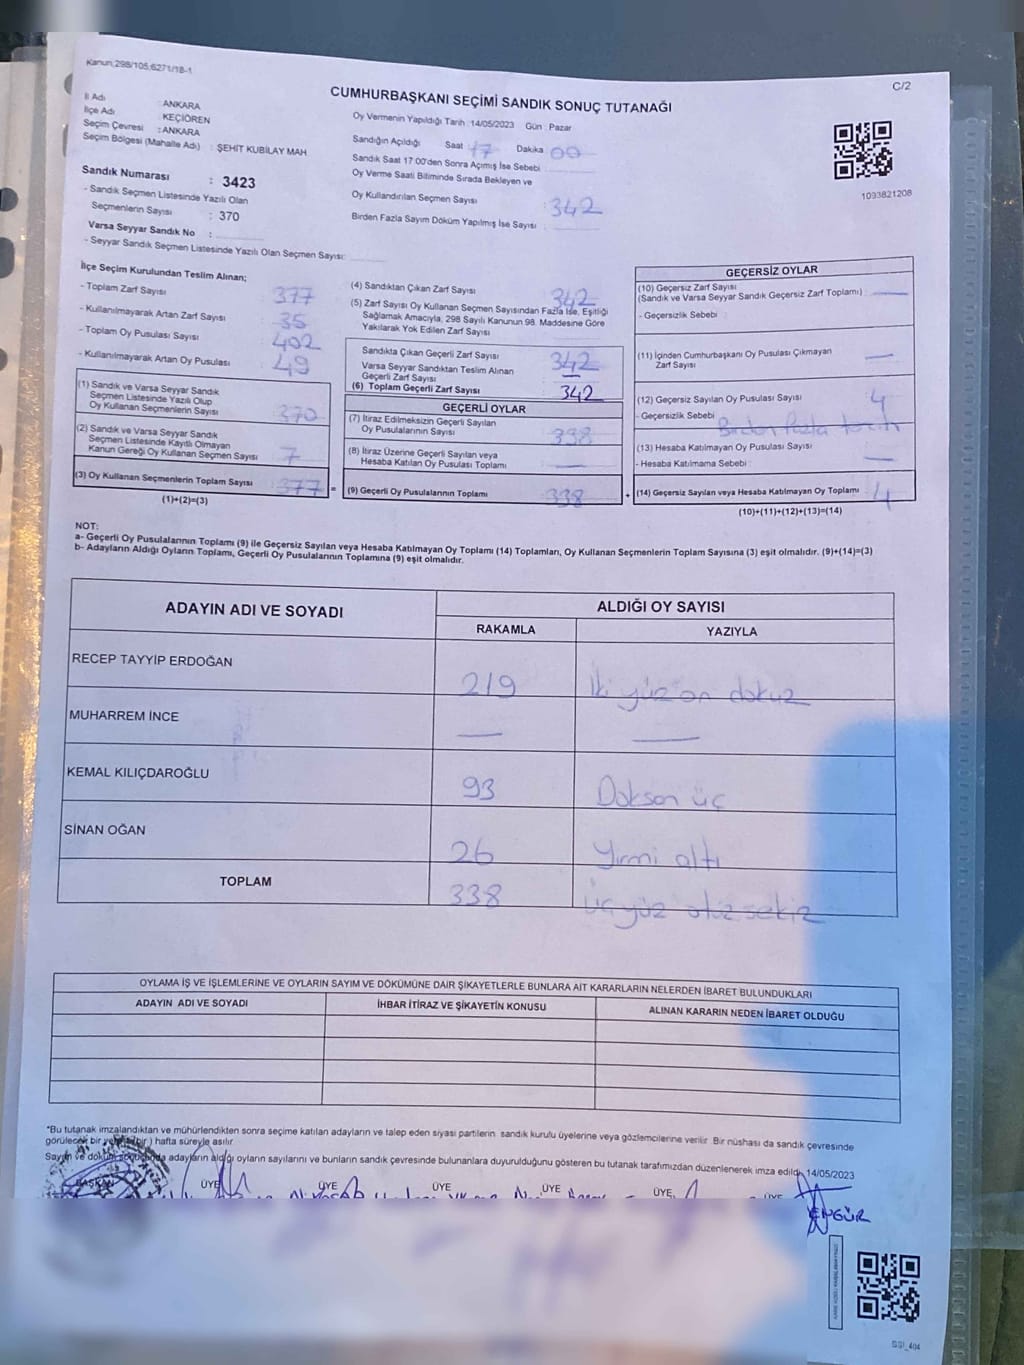 Kanun:298/105,6271/18-1
C/2
CUMHURBAŞKANI SEÇİMİ SANDIK SONUÇ TUTANAĞI
İl Adı : ANKARA
İlçe Adı : KEÇİÖREN
Seçim Çevresi : ANKARA
Seçim Bölgesi (Mahalle Adı) : ŞEHİT KUBİLAY MAH
Sandık Numarası : 3423
- Sandık Seçmen Listesinde Yazılı Olan
Seçmenlerin Sayısı : 370
Varsa Seyyar Sandık No :
- Seyyar Sandık Seçmen Listesinde Yazılı Olan Seçmen Sayısı:
Oy Vermenin Yapıldığı Tarih :14/05/2023 Gün : Pazar
Sandığın Açıldığı Saat 17 Dakika 00
Sandık Saat 17:00'den Sonra Açımış İse Sebebi
Oy Verme Saati Bitiminde Sırada Bekleyen ve
Oy Kullandırılan Seçmen Sayısı : 342
Birden Fazla Sayım Döküm Yapılmış İse Sayısı :
1093821208
İlçe Seçim Kurulundan Teslim Alınan;
- Toplam Zarf Sayısı 377
- Kullanılmayarak Artan Zarf Sayısı : 35
- Toplam Oy Pusulası Sayısı : 402
- Kullanılmayarak Artan Oy Pusulası : 49
(1) Sandık ve Varsa Seyyar Sandık
Seçmen Listesinde Yazılı Olup
Oy Kullanan Seçmenlerin Sayısı : 370
(2) Sandık ve Varsa Seyyar Sandık
Seçmen Listesinde Kayıtlı Olmayan
Kanun Gereği Oy Kullanan Seçmen Sayısı : 7
(3) Oy Kullanan Seçmenlerin Toplam Sayısı : 377
(1)+(2)=(3)
(4) Sandıktan Çıkan Zarf Sayısı : 342
(5) Zarf Sayısı Oy Kullanan Seçmen Sayısından Fazla İse, Eşitliği
Sağlamak Amacıyla, 298 Sayılı Kanunun 98. Maddesine Göre
Yakılarak Yok Edilen Zarf Sayısı :
Sandıkta Çıkan Geçerli Zarf Sayısı : 342
Varsa Seyyar Sandıktan Teslim Alınan
Geçerli Zarf Sayısı : —
(6) Toplam Geçerli Zarf Sayısı : 342
GEÇERLİ OYLAR
(7) İtiraz Edilmeksizin Geçerli Sayılan
Oy Pusulalarının Sayısı : 338
(8) İtiraz Üzerine Geçerli Sayılan veya
Hesaba Katılan Oy Pusulası Toplamı : —
= (9) Geçerli Oy Pusulalarının Toplamı : 338
GEÇERSİZ OYLAR
(10) Geçersiz Zarf Sayısı
(Sandık ve Varsa Seyyar Sandık Geçersiz Zarf Toplamı) : —
- Geçersizlik Sebebi :
(11) İçinden Cumhurbaşkanı Oy Pusulası Çıkmayan
Zarf Sayısı : —
(12) Geçersiz Sayılan Oy Pusulası Sayısı : 4
- Geçersizlik Sebebi : Birden fazla tercih
(13) Hesaba Katılmayan Oy Pusulası Sayısı : —
- Hesaba Katılmama Sebebi :
+ (14) Geçersiz Sayılan veya Hesaba Katılmayan Oy Toplamı : 4
(10)+(11)+(12)+(13)=(14)
NOT:
a- Geçerli Oy Pusulalarının Toplamı (9) ile Geçersiz Sayılan veya Hesaba Katılmayan Oy Toplamı (14) Toplamları, Oy Kullanan Seçmenlerin Toplam Sayısına (3) eşit olmalıdır. (9)+(14)=(3)
b- Adayların Aldığı Oyların Toplamı, Geçerli Oy Pusulalarının Toplamına (9) eşit olmalıdır.
ADAYIN ADI VE SOYADI ALDIĞI OY SAYISI
RAKAMLA YAZIYLA
RECEP TAYYİP ERDOĞAN 219 İki yüz on dokuz
MUHARREM İNCE — —
KEMAL KILIÇDAROĞLU 93 Doksan üç
SİNAN OĞAN 26 Yirmi altı
TOPLAM 338 üç yüz otuz sekiz
OYLAMA İŞ VE İŞLEMLERİNE VE OYLARIN SAYIM VE DÖKÜMÜNE DAİR ŞİKAYETLERLE BUNLARA AİT KARARLARIN NELERDEN İBARET BULUNDUKLARI
ADAYIN ADI VE SOYADI İHBAR İTİRAZ VE ŞİKAYETİN KONUSU ALINAN KARARIN NEDEN İBARET OLDUĞU
*Bu tutanak imzalandıktan ve mühürlendikten sonra seçime katılan adayların ve talep eden siyasi partilerin sandık kurulu üyelerine veya gözlemcilerine verilir. Bir nüshası da sandık çevresinde
görülecek bir yere (bir) hafta süreyle asılır.
Sayım ve döküm sonucunda adayların aldığı oyların sayılarını ve bunların sandık çevresinde bulunanlara duyurulduğunu gösteren bu tutanak tarafımızdan düzenlenerek imza edildi. 14/05/2023
BAŞKAN ÜYE ÜYE ÜYE ÜYE ÜYE ÜYE